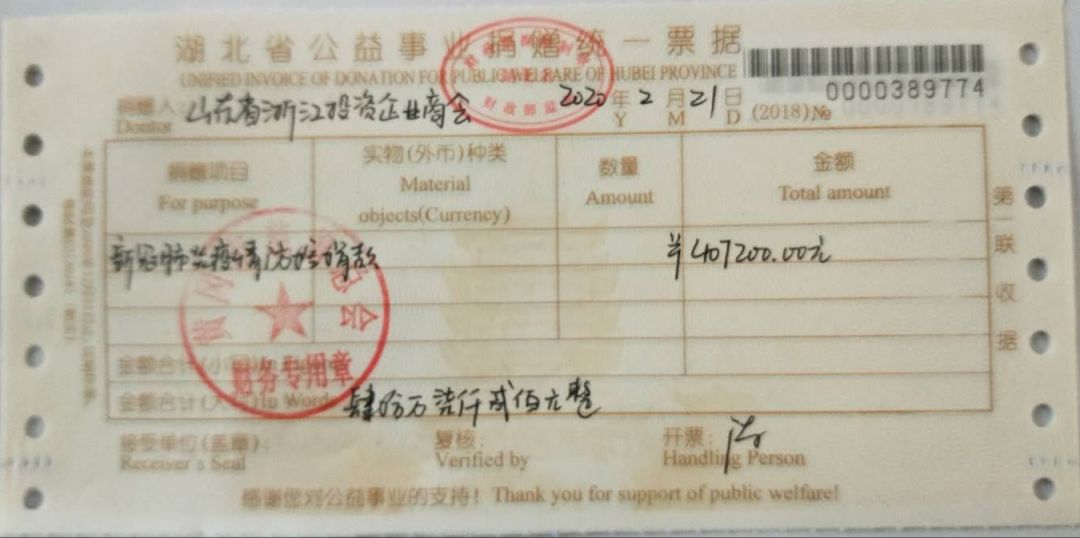 湖北省公益事业捐赠统一票据
UNIFIED INVOICE OF DONATION FOR PUBLIC WELFARE OF HUBEI PROVINCE
捐赠人: 山东省浙江投资企业商会 2020 年 2 月 21 日 (2018)№ 0000389774
Donor Y M D
捐赠项目 实物(外币)种类 数量 金额
For purpose Material objects(Currency) Amount Total amount
新冠肺炎疫情防控捐款 ¥407200.00元
金额合计(小写)In
金额合计(大写)In Words 肆拾万柒仟贰佰元整
接受单位(盖章): 复核: 开票:
Receiver's Seal Verified by Handling Person
感谢您对公益事业的支持! Thank you for support of public welfare!
第二联收据
财务专用章